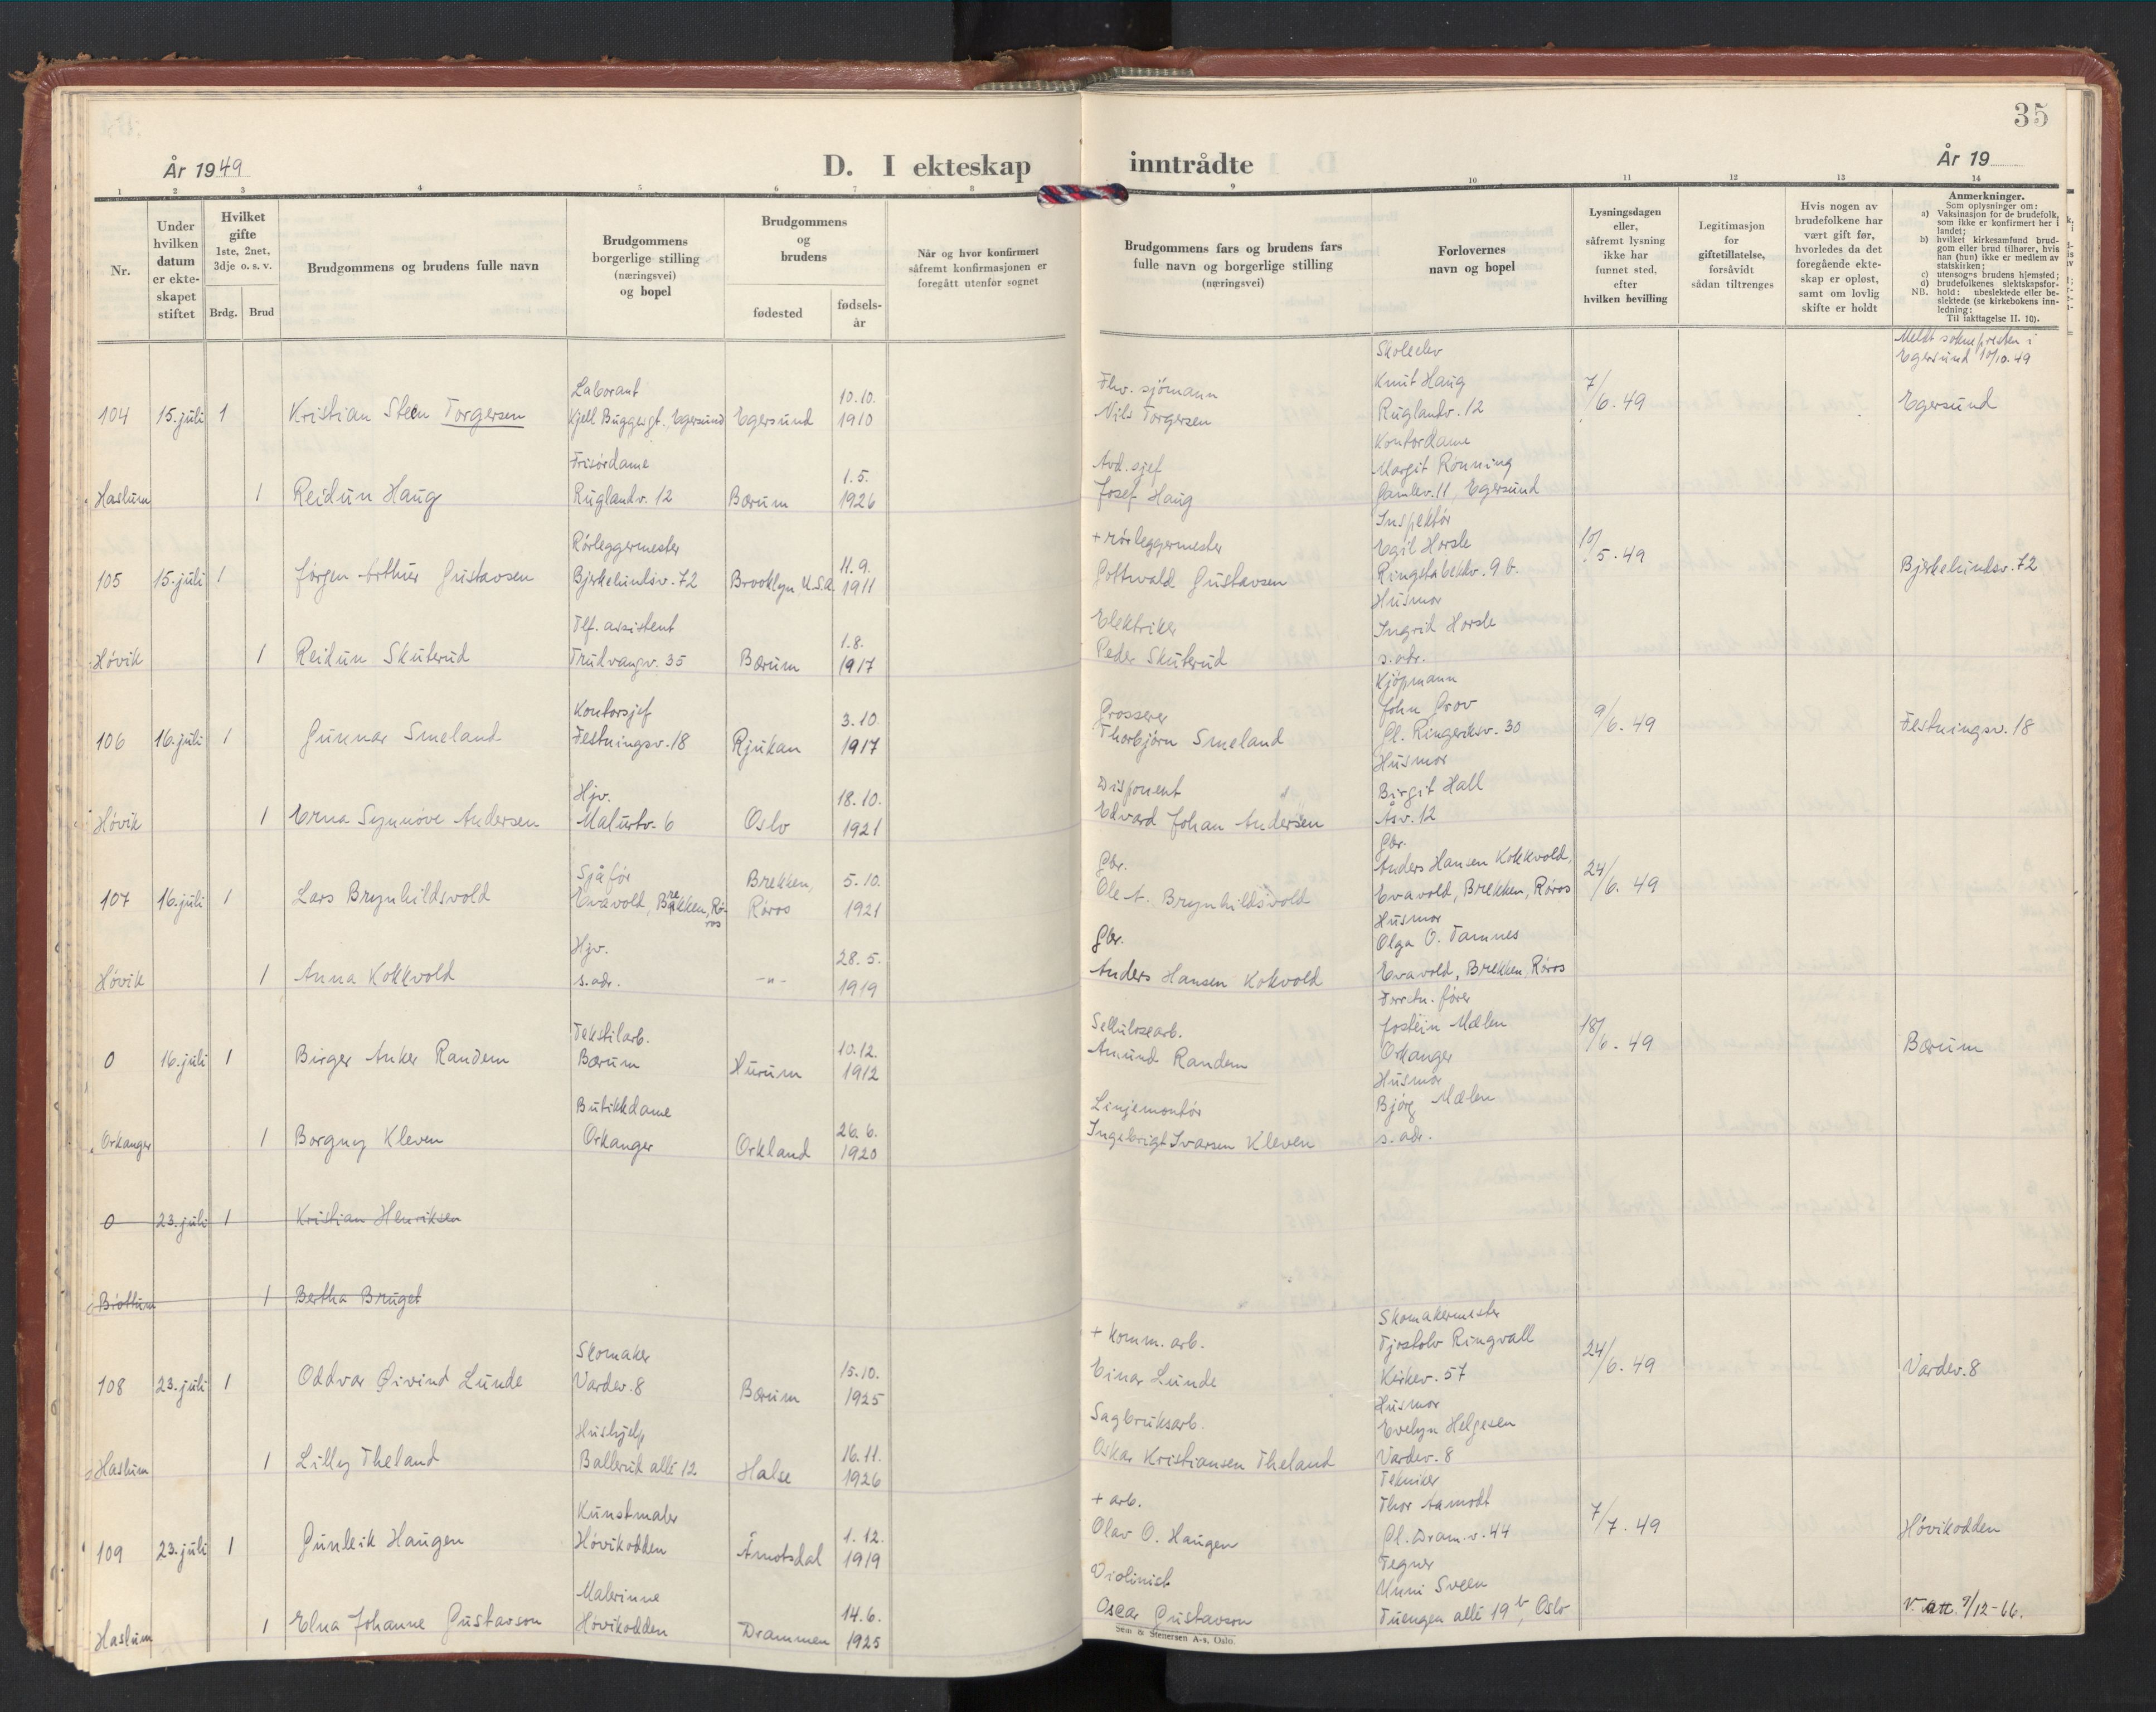 35
År 1949
D. I ekteskap inntrådte
År 19
1 2 3 4 5 6 7 8 9 10 11 12 13 14
Nr.
Under hvilken datum er ekteskapet stiftet
Hvilket gifte 1ste, 2net, 3dje o. s. v.
Brdg. Brud
Brudgommens og brudens fulle navn
Brudgommens borgerlige stilling (næringsvei) og bopel
Brudgommens og brudens
fødested
fødsels-år
Når og hvor konfirmert såfremt konfirmasjonen er foregått utenfor sognet
Brudgommens fars og brudens fars fulle navn og borgerlige stilling (næringsvei)
Forlovernes navn og bopel
Lysningsdagen eller, såfremt lysning ikke har funnet sted, efter hvilken bevilling
Legitimasjon for giftetillatelse, forsåvidt sådan tiltrenges
Hvis nogen av brudefolkene har vært gift før, hvorledes da det foregående ekteskap er opløst, samt om lovlig skifte er holdt
Anmerkninger.
Som oplysninger om:
a) Vaksinasjon for de brudefolk, som ikke er konfirmert her i landet;
b) hvilket kirkesamfund brudgom eller brud tilhører, hvis han (hun) ikke er medlem av statskirken;
c) utensogns brudens hjemsted;
d) brudefolkenes slektskapsforhold: ubeslektede eller beslektede (se kirkebokens innledning:
NB.
Til iakttagelse II. 10).
Meldt soknepresten i
Egersund 10/10.49
104 15.juli 1 Kristian Steen Torgersen
Laborant
Kjell Buggesgt., Egersund
Egersund
10.10.
1910
Fhv. sjömann
Nils Torgersen
Skoleelev
Knut Haug
Ruglandv. 12
7/6.49
Egersund
Haslum 1 Reidun Haug
Frisørdame
Ruglandv. 12
Bærum
1.5.
1926
Avd. sjef
Josef Haug
Kontordame
Margit Rønning
Gamlev. 11, Egersund
105 15.juli 1 Jørgen Arthur Gustavsen
Rørleggermester
Bjerkelundsv. 72
Brooklyn, U.S.A.
11.9.
1911
+ rørleggermester
Gottwald Gustavsen
Inspektør
Egil Horsle
Ringstabekkv. 9 b.
10/5.49
Bjerkelundsv. 72
Høvik 1 Reidun Skuterud
Tlf. assistent
Trudvangv. 35
Bærum
1.8.
1917
Elektriker
Peder Skuterud
Husmor
Ingrid Horsle
s. adr.
106 16.juli 1 Gunnar Smeland
Kontorsjef
Festningsv. 18
Rjukan
3.10.
1917
Grosserer
Thorbjørn Smeland
Kjøpmann
John Grov
Gl. Ringeriksv. 30
9/6.49
Festningsv. 18
Høvik 1 Erna Synnøve Andersen
Hjv.
Malurtv. 6
Oslo
18.10.
1921
Disponent
Edvard Johan Andersen
Husmor
Birgit Hall
Åsv. 12
107 16.juli 1 Lars Brynhildsvold
Sjåfør
Evavold, Brekken, Røros
Brekken,
Røros
5.10.
1921
Gbr.
Ole A. Brynhildsvold
Gbr.
Anders Hansen Kokkvold,
Evavold, Brekken, Røros
24/6.49
Høvik 1 Anna Kokkvold
Hjv.
s. adr.
-"-
28.5.
1919
Gbr.
Anders Hansen Kokvold
Husmor
Olga O. Tamnes
Evavold, Brekken, Røros
0 16.juli 1 Birger Anker Randem
Tekstilarb.
Bærum
Hurum
10.12.
1912
Sellulosearb.
Amund Randem
Forretn. fører
Jostein Mælen
Orkanger
18/6.49
Bærum
Orkanger 1 Borgny Kleven
Butikkdame
Orkanger
Orkland
26.6.
1920
Linjemontør
Ingebrigt Ivarsen Kleven
Husmor
Bjørg Mælen
s. adr.
0 23.juli 1 Kristian Henriksen
Brøttum 1 Bertha Bruget
108 23.juli 1 Oddvar Øivind Lunde
Skomaker
Vardev. 8
Bærum
15.10.
1925
+ komm. arb.
Einar Lunde
Skomakermester
Tjostolv Ringvall
Kirkev. 57
24/6.49
Vardev. 8
Haslum 1 Lilly Theland
Hushjelp
Ballerud allé 12
Halse
16.11.
1926
Sagbruksarb.
Oskar Kristiansen Theland
Husmor
Evelyn Helgesen
Vardev. 8
109 23.juli 1 Gunleik Haugen
Kunstmaler
Høvikodden
Åmotsdal
1.12.
1919
+ arb.
Olav O. Haugen
Tekniker
Thor Aamodt
Gl. Dram.v. 44
7/7.49
Høvikodden
Haslum 1 Elna Johanne Gustavson
Malerinne
Høvikodden
Drammen
14.6.
1925
Violinist
Oscar Gustavson
Tegner
Unni Sveen
Tuengen allé 19 b, Oslo
v. att. 9/12-66.
Sem & Stenersen A-s, Oslo.